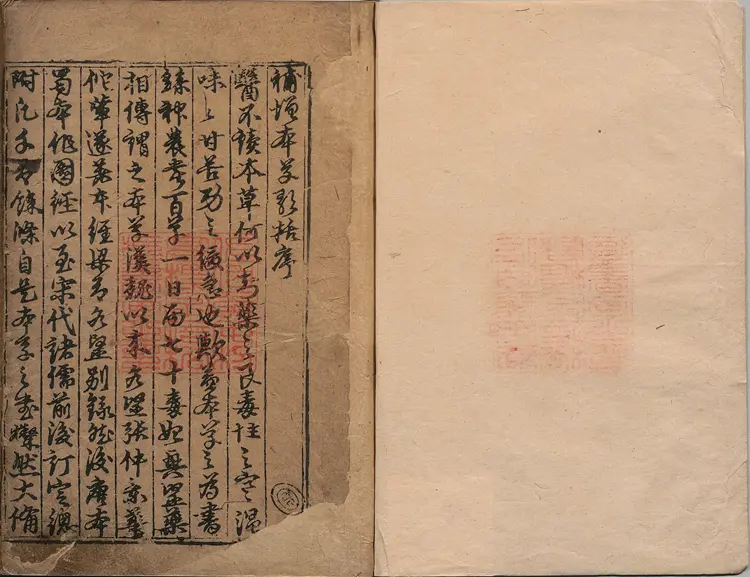 補增本草歌括序
醫不讀本草何以知藥之良毒性之寒溫
味之甘苦功之緩急也歟蓋本草之爲書
錄神農嘗百草一日而七十毒始興醫藥
相傳謂之本草漢魏以來名醫張仲景華
佗輩遂爲本經梁有名醫別錄然後唐本
蜀本作圖經以至宋代諸儒前後訂定總
附凡千餘條自是本草之書燦然大備